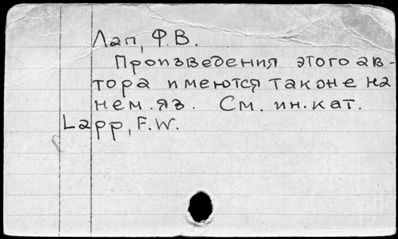 Лап, Ф.В.
Произведения этого ав-
тора имеются также на
нем. яз. См. ин. кат.
Lapp, F.W.